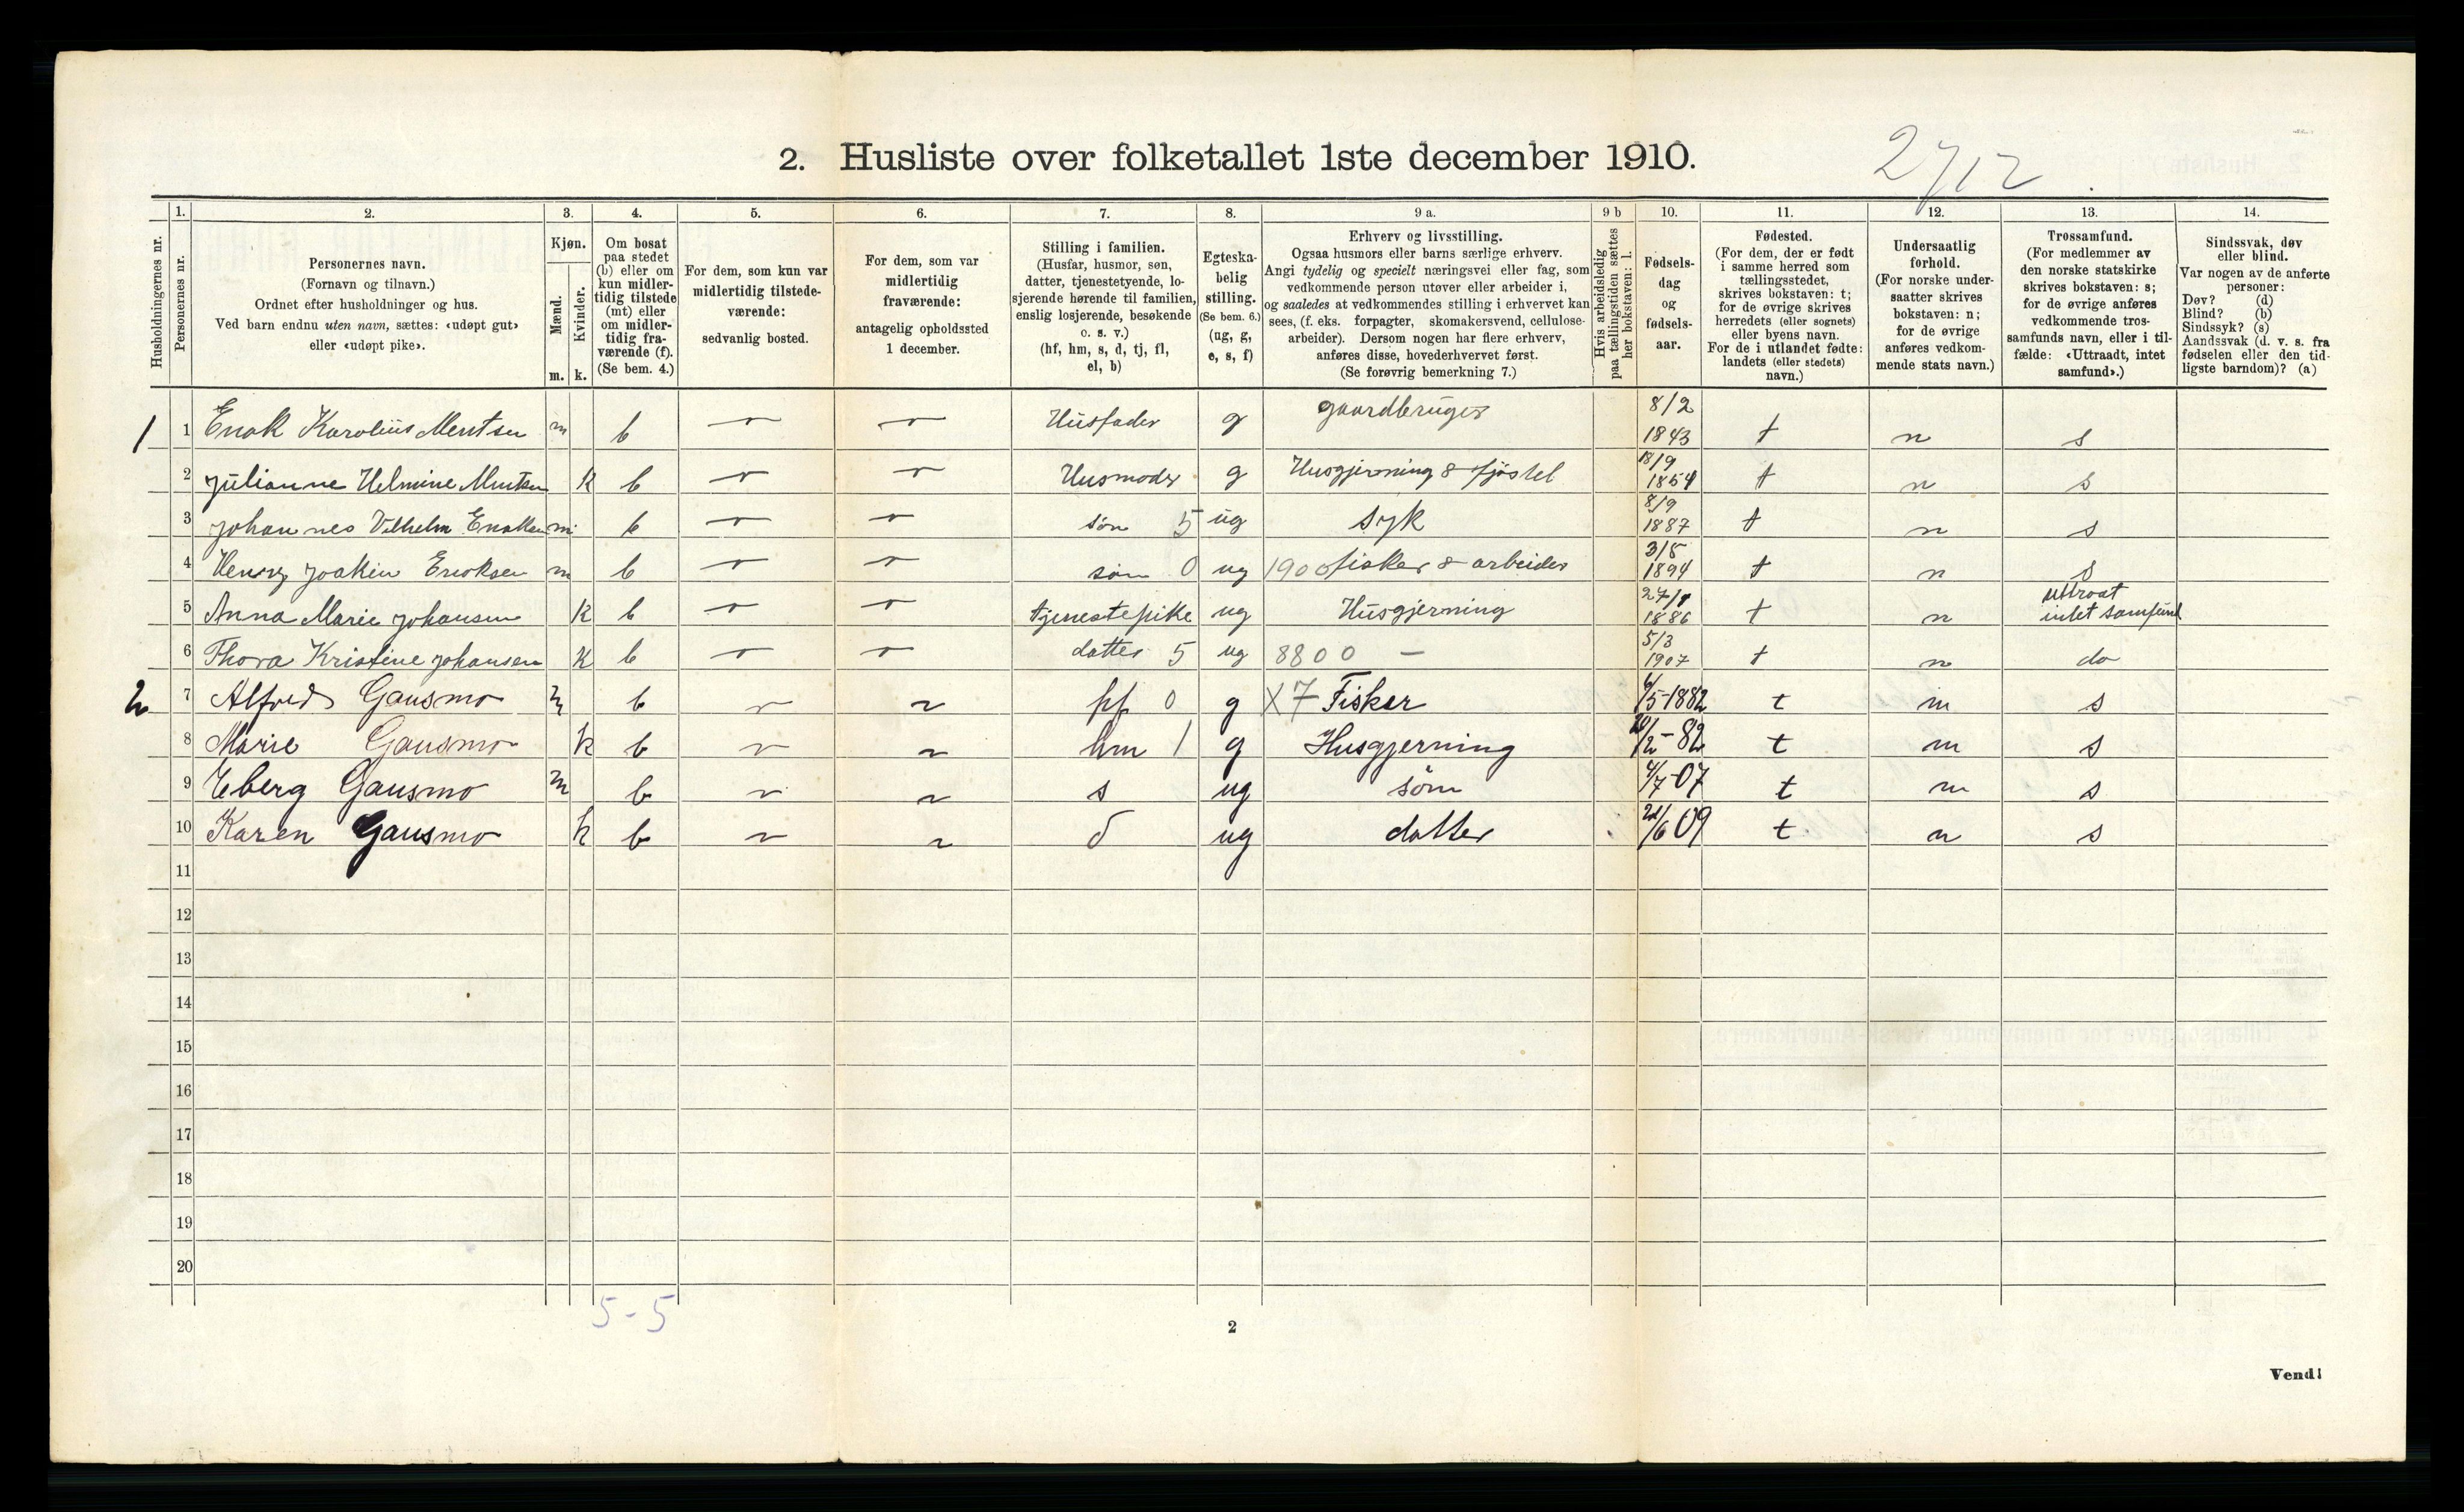 2712
2. Husliste over folketallet 1ste december 1910.
Husholdningernes nr.
1. Personernes nr.
2. Personernes navn.
(Fornavn og tilnavn.)
Ordnet efter husholdninger og hus.
Ved barn endnu uten navn, sættes: «udøpt gut»
eller «udøpt pike».
3. Kjøn.
Mænd. m.
Kvinder. k.
4. Om bosat
paa stedet
(b) eller om
kun midler-
tidig tilstede
(mt) eller
om midler-
tidig fra-
værende (f).
(Se bem. 4.)
5. For dem, som kun var
midlertidig tilstede-
værende:
sedvanlig bosted.
6. For dem, som var
midlertidig
fraværende:
antagelig opholdssted
1 december.
7. Stilling i familien.
(Husfar, husmor, søn,
datter, tjenestetyende, lo-
sjerende hørende til familien,
enslig losjerende, besøkende
o. s. v.)
(hf, hm, s, d, tj, fl,
el, b)
8. Egteska-
belig
stilling.
(Se bem. 6.)
(ug, g,
e, s, f)
9 a. Erhverv og livsstilling.
Ogsaa husmors eller barns særlige erhverv.
Angi tydelig og specielt næringsvei eller fag, som
vedkommende person utøver eller arbeider i,
og saaledes at vedkommendes stilling i erhvervet kan
sees, (f. eks. forpagter, skomakersvend, cellulose-
arbeider). Dersom nogen har flere erhverv,
anføres disse, hovederhvervet først.
(Se forøvrig bemerkning 7.)
9 b Hvis arbeidsledig
paa tællingstiden sættes
her bokstaven: l.
10. Fødsels-
dag
og
fødsels-
aar.
11. Fødested.
(For dem, der er født
i samme herred som
tællingsstedet,
skrives bokstaven: t;
for de øvrige skrives
herredets (eller sognets)
eller byens navn.
For de i utlandet fødte:
landets (eller stedets)
navn.)
12. Undersaatlig
forhold.
(For norske under-
saatter skrives
bokstaven: n;
for de øvrige
anføres vedkom-
mende stats navn.)
13. Trossamfund.
(For medlemmer av
den norske statskirke
skrives bokstaven: s;
for de øvrige anføres
vedkommende tros-
samfunds navn, eller i til-
fælde: «Uttraadt, intet
samfund».)
14. Sindssvak, døv
eller blind.
Var nogen av de anførte
personer:
Døv? (d)
Blind? (b)
Sindssyk? (s)
Aandssvak (d. v. s. fra
fødselen eller den tid-
ligste barndom)? (a)
1 1 Enok Karoliüs Mentsen m b Hüsfader g gaardbrüger 8/2 1843 t n s
2 Jülianne Helmine Mentsen K b Husmoder g Husgjerning & fjøstel 18/9 1854 t n s
3 Johannes Vilhelm Enoksen m b søn 5 ug syk 8/9 1887 t n s
4 Henry Joakin Enoksen m b søn 0 ug 1900 fisker & arbeider 3/5 1894 t n s
5 Anna Marie Johansen K b tjenestepike ug Hüsgjerning 27/1 1886 t n uttroat intet samfünd
6 Thora Kristine Johansen K b datter 5 ug 8800 — 5/3 1907 t n do
2 7 Alfred Gausmo m b hf 0 g X7 Fisker 6/5-1882 t n s
8 Marie Gausmo k b hm 1 g Husgjerning /2-82 t n s
9 Eberg Gausmo m b s ug søm 4/7-07 t n s
10 Karen Gausmo k b d ug datter 21/6 09 t n s
11
12
13
14
15
16
17
18
19
20
5-5
2
Vend!